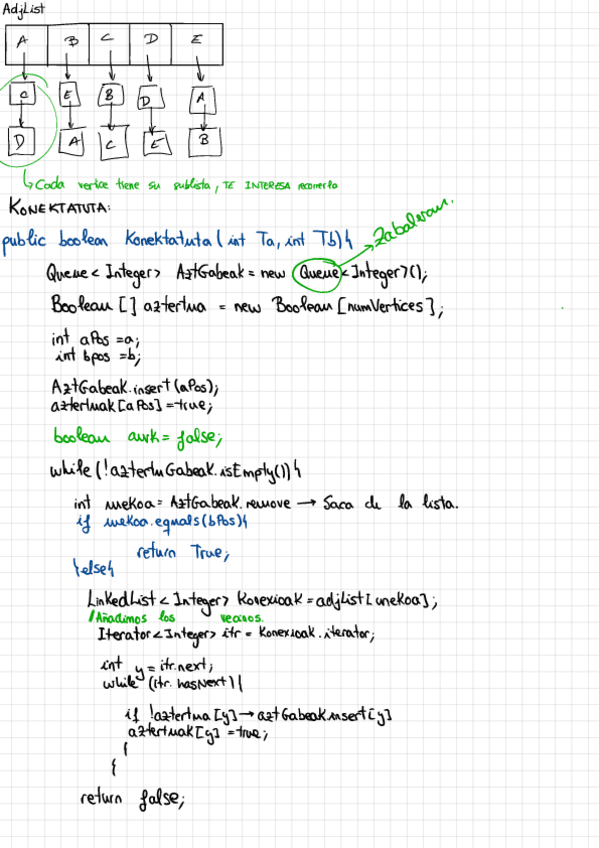 AdjList
A B C D E
C E B D A
D A C E B
Cada vertice tiene su sublista, TE INTERESA recorrerla
KONEKTATUTA:
public boolean Konektatuta (int Ta, int Tb){
Zabaleran.
Queue<Integer> AztGabeak = new Queue<Integer>();
Boolean [] aztertua = new Boolean [numVertices];
int aPos = a;
int bpos = b;
AztGabeak.insert (aPos);
aztertuak [aPos] = true;
boolean aurk = false;
while (!aztertuGabeak.isEmpty()){
int unekoa = AztGabeak.remove → Saca de la lista.
if unekoa.equals(bPos){
return True;
}else{
LinkedList<Integer> Konexioak = adjList[unekoa];
/Añadimos los vecinos.
Iterator<Integer> itr = Konexioak.iterator;
int y = itr.next;
while (itr.hasNext){
if !aztertua [y] → aztGabeak.insert [y]
aztertuak [y] = true;
}
}
return false;